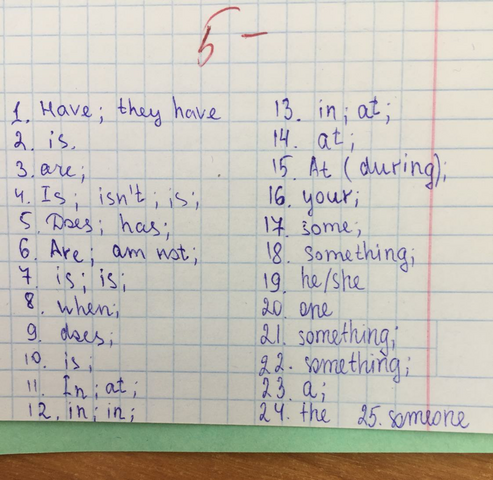 5 -
1. Have; they have
2. is.
3. are;
4. Is; isn't; is;
5. Does; has;
6. Are; am not;
7. is; is;
8. when;
9. does;
10. is;
11. In; at;
12. in; in;
13. in; at;
14. at;
15. At (during);
16. your;
17. some;
18. something;
19. he/she
20. one
21. something;
22. something;
23. a;
24. the 25. someone